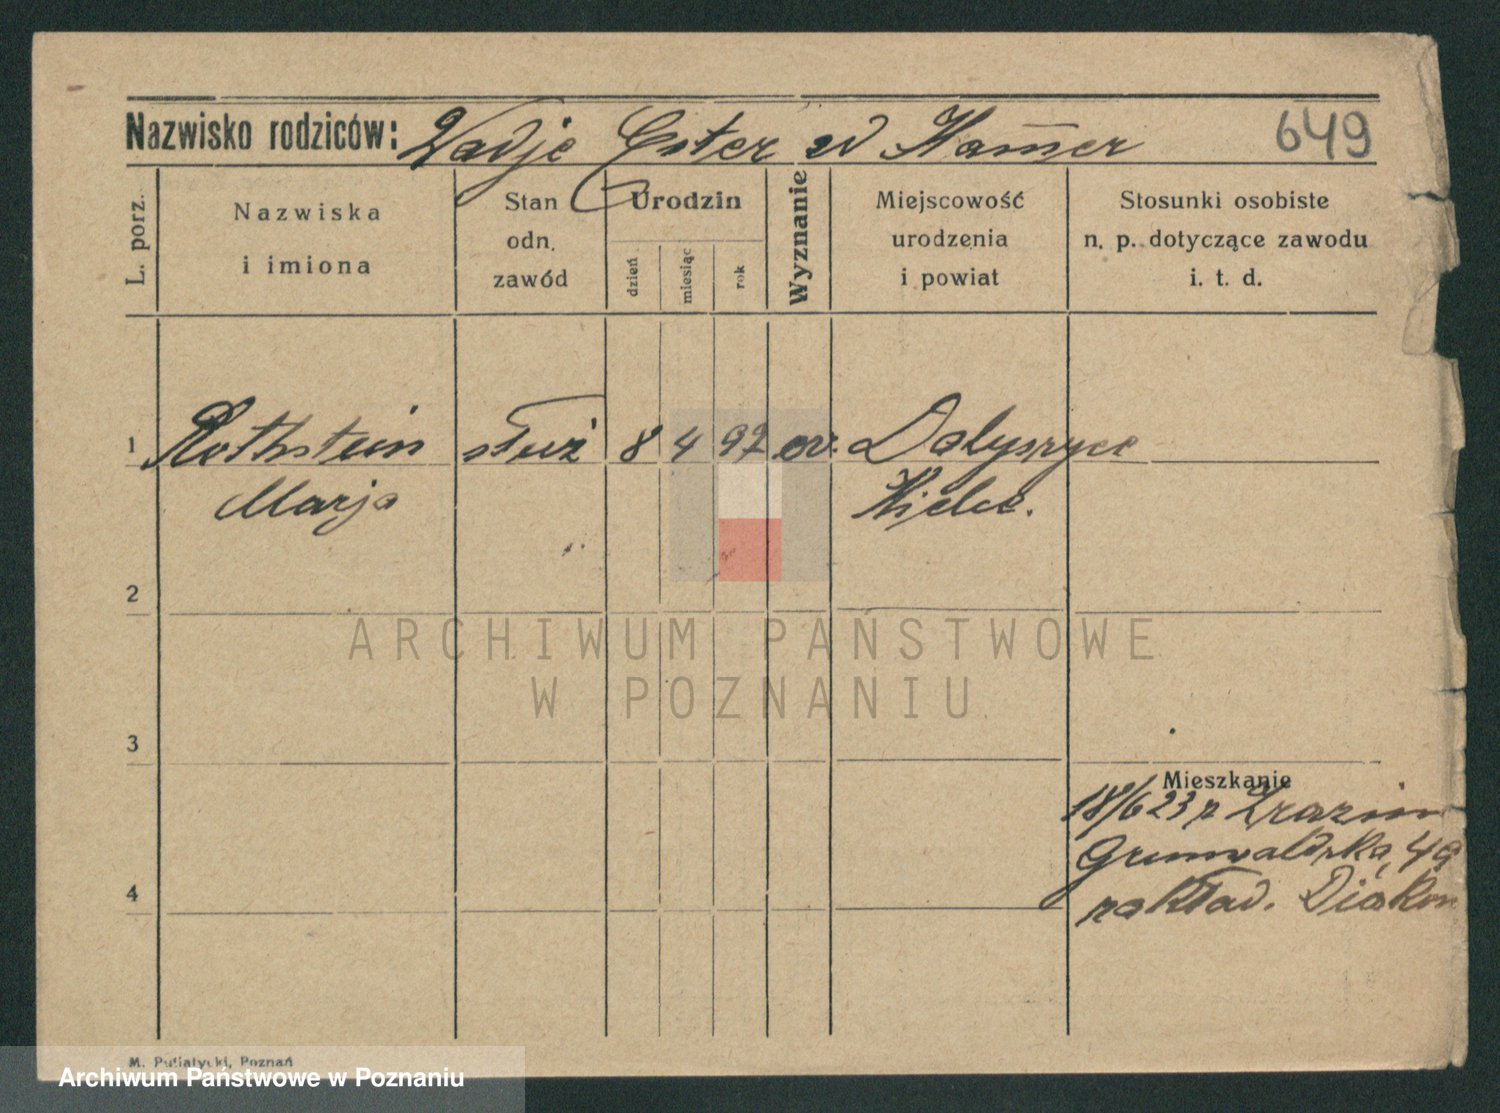 Nazwisko rodziców: Wadje Ester zd Ham̅er 649
L. porz.
Nazwiska
i imiona
Stan
odn.
zawód
Urodzin
dzień
miesiąc
rok
Wyznanie
Miejscowość
urodzenia
i powiat
Stosunki osobiste
n. p. dotyczące zawodu
i. t. d.
1 Rothstein służ 8 4 97 ew. Daleszyce
Marja Kielc.
2
3
Mieszkanie
18/6 23 z
Grunwaldska 49
4
zakład. Diakon
ARCHIWUM PAŃSTWOWE
W POZNANIU
M. Putiatycki, Poznań
Archiwum Państwowe w Poznaniu